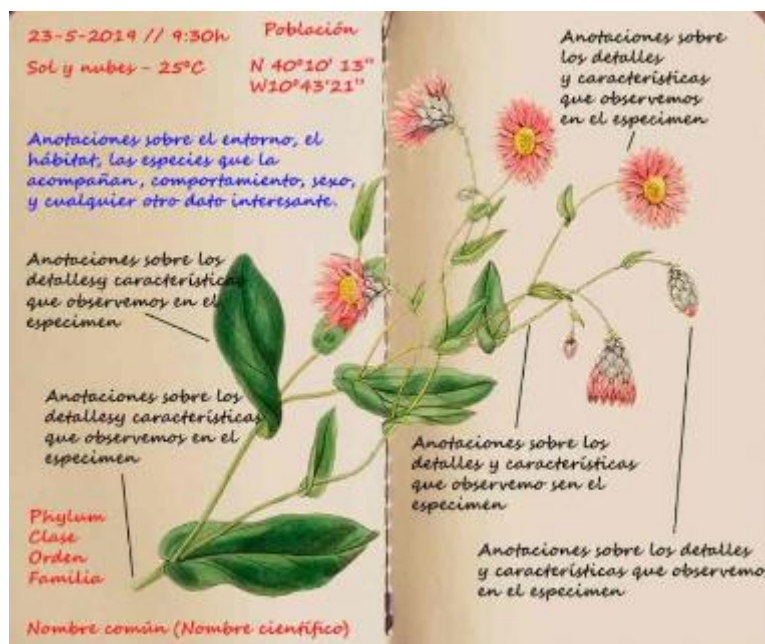 23-5-2019 // 9:30h
Población
Sol y nubes - 25ºC
N 40º10' 13"
W10º43'21"
Anotaciones sobre el entorno, el
hábitat, las especies que la
acompañan, comportamiento, sexo,
y cualquier otro dato interesante.
Anotaciones sobre los
detallesy característicās
que observemos en el
especimen
Anotaciones sobre los
detallesy características
que observemos en el
especimen
Phylum
Clase
Orden
Familia
Nombre común (Nombre científico)
Anotaciones sobre
los detalles
y características
que observemos
en el especimen
Anotaciones sobre los
detalles y características
que observemo sen el
especimen
Anotaciones sobre los detalles
y características que observemos
en el especimen